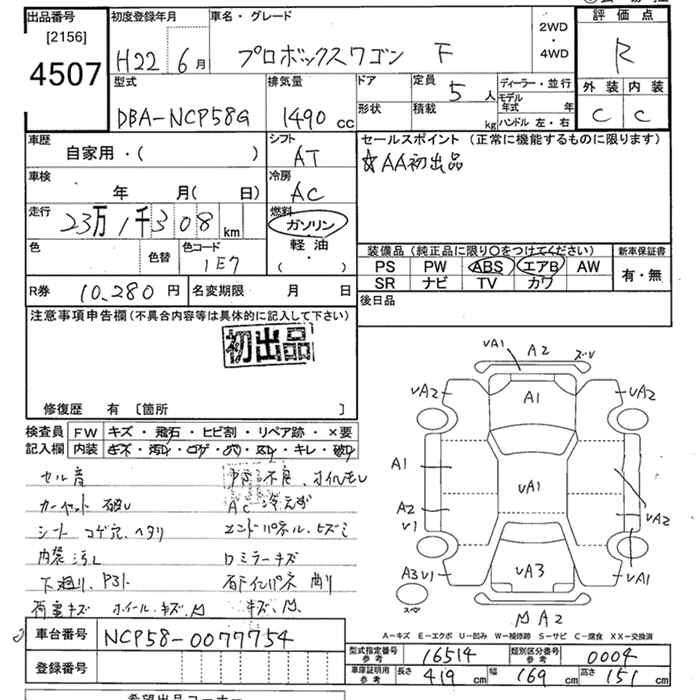 出品番号
[2156]
4507
初度登録年月
H22 6月
車名・グレード
プロボックスワゴン F
2WD
・
4WD
評価点
R
外装 内装
C C
型式
DBA-NCP58G
排気量
1490 cc
ドア
形状
定員
5人
積載
kg
ディーラー・並行
モデル年式 年
ハンドル 左・右
車歴
自家用・( )
シフト
AT
セールスポイント (正常に機能するものに限ります)
☆AA初出品
車検
年 月( 日)
冷房
AC
走行
23万1千308km
燃料
ガソリン
軽油
( ・ )
色
色替
色コード
1E7
装備品 (純正品に限り○をつけてください)
PS PW ABS エアB AW
SR ナビ TV カワ
新車保証書
有・無
R券 10,280円
名変期限 月 日
後日品
注意事項申告欄 (不具合内容等は具体的に記入して下さい)
初出品
修復歴 有 〔箇所 〕
検査員
記入欄
FW キズ・飛石・ヒビ割・リペア跡・×要
内装 キズ・汚レ・コゲ・穴・スレ・キレ・破レ
セル音
不良、オイルモレ
カーペット 破レ
AC 冷えず
シート コゲ穴、ヘタリ
エンドパネル、ヒズミ
内装 汚レ
ロミラーキズ
下廻り、
曲り
荷室キズ ホイール、キズ、
キズ、
vA1 A2 ズレ
vA2 A1 vA2
A1 vA1
A2 v1 vA2
A3 v1 vA3 vA1
A2
スペ
A-キズ E-エクボ U-凹み W-補修跡 S-サビ C-腐食 XX-交換済
車台番号 NCP58-0077754
登録番号
型式指定番号
参考
16514
類別区分番号
参考
0004
車庫証明用
参考
長さ 419cm 幅 169cm 高さ 151cm
希望出品コーナー